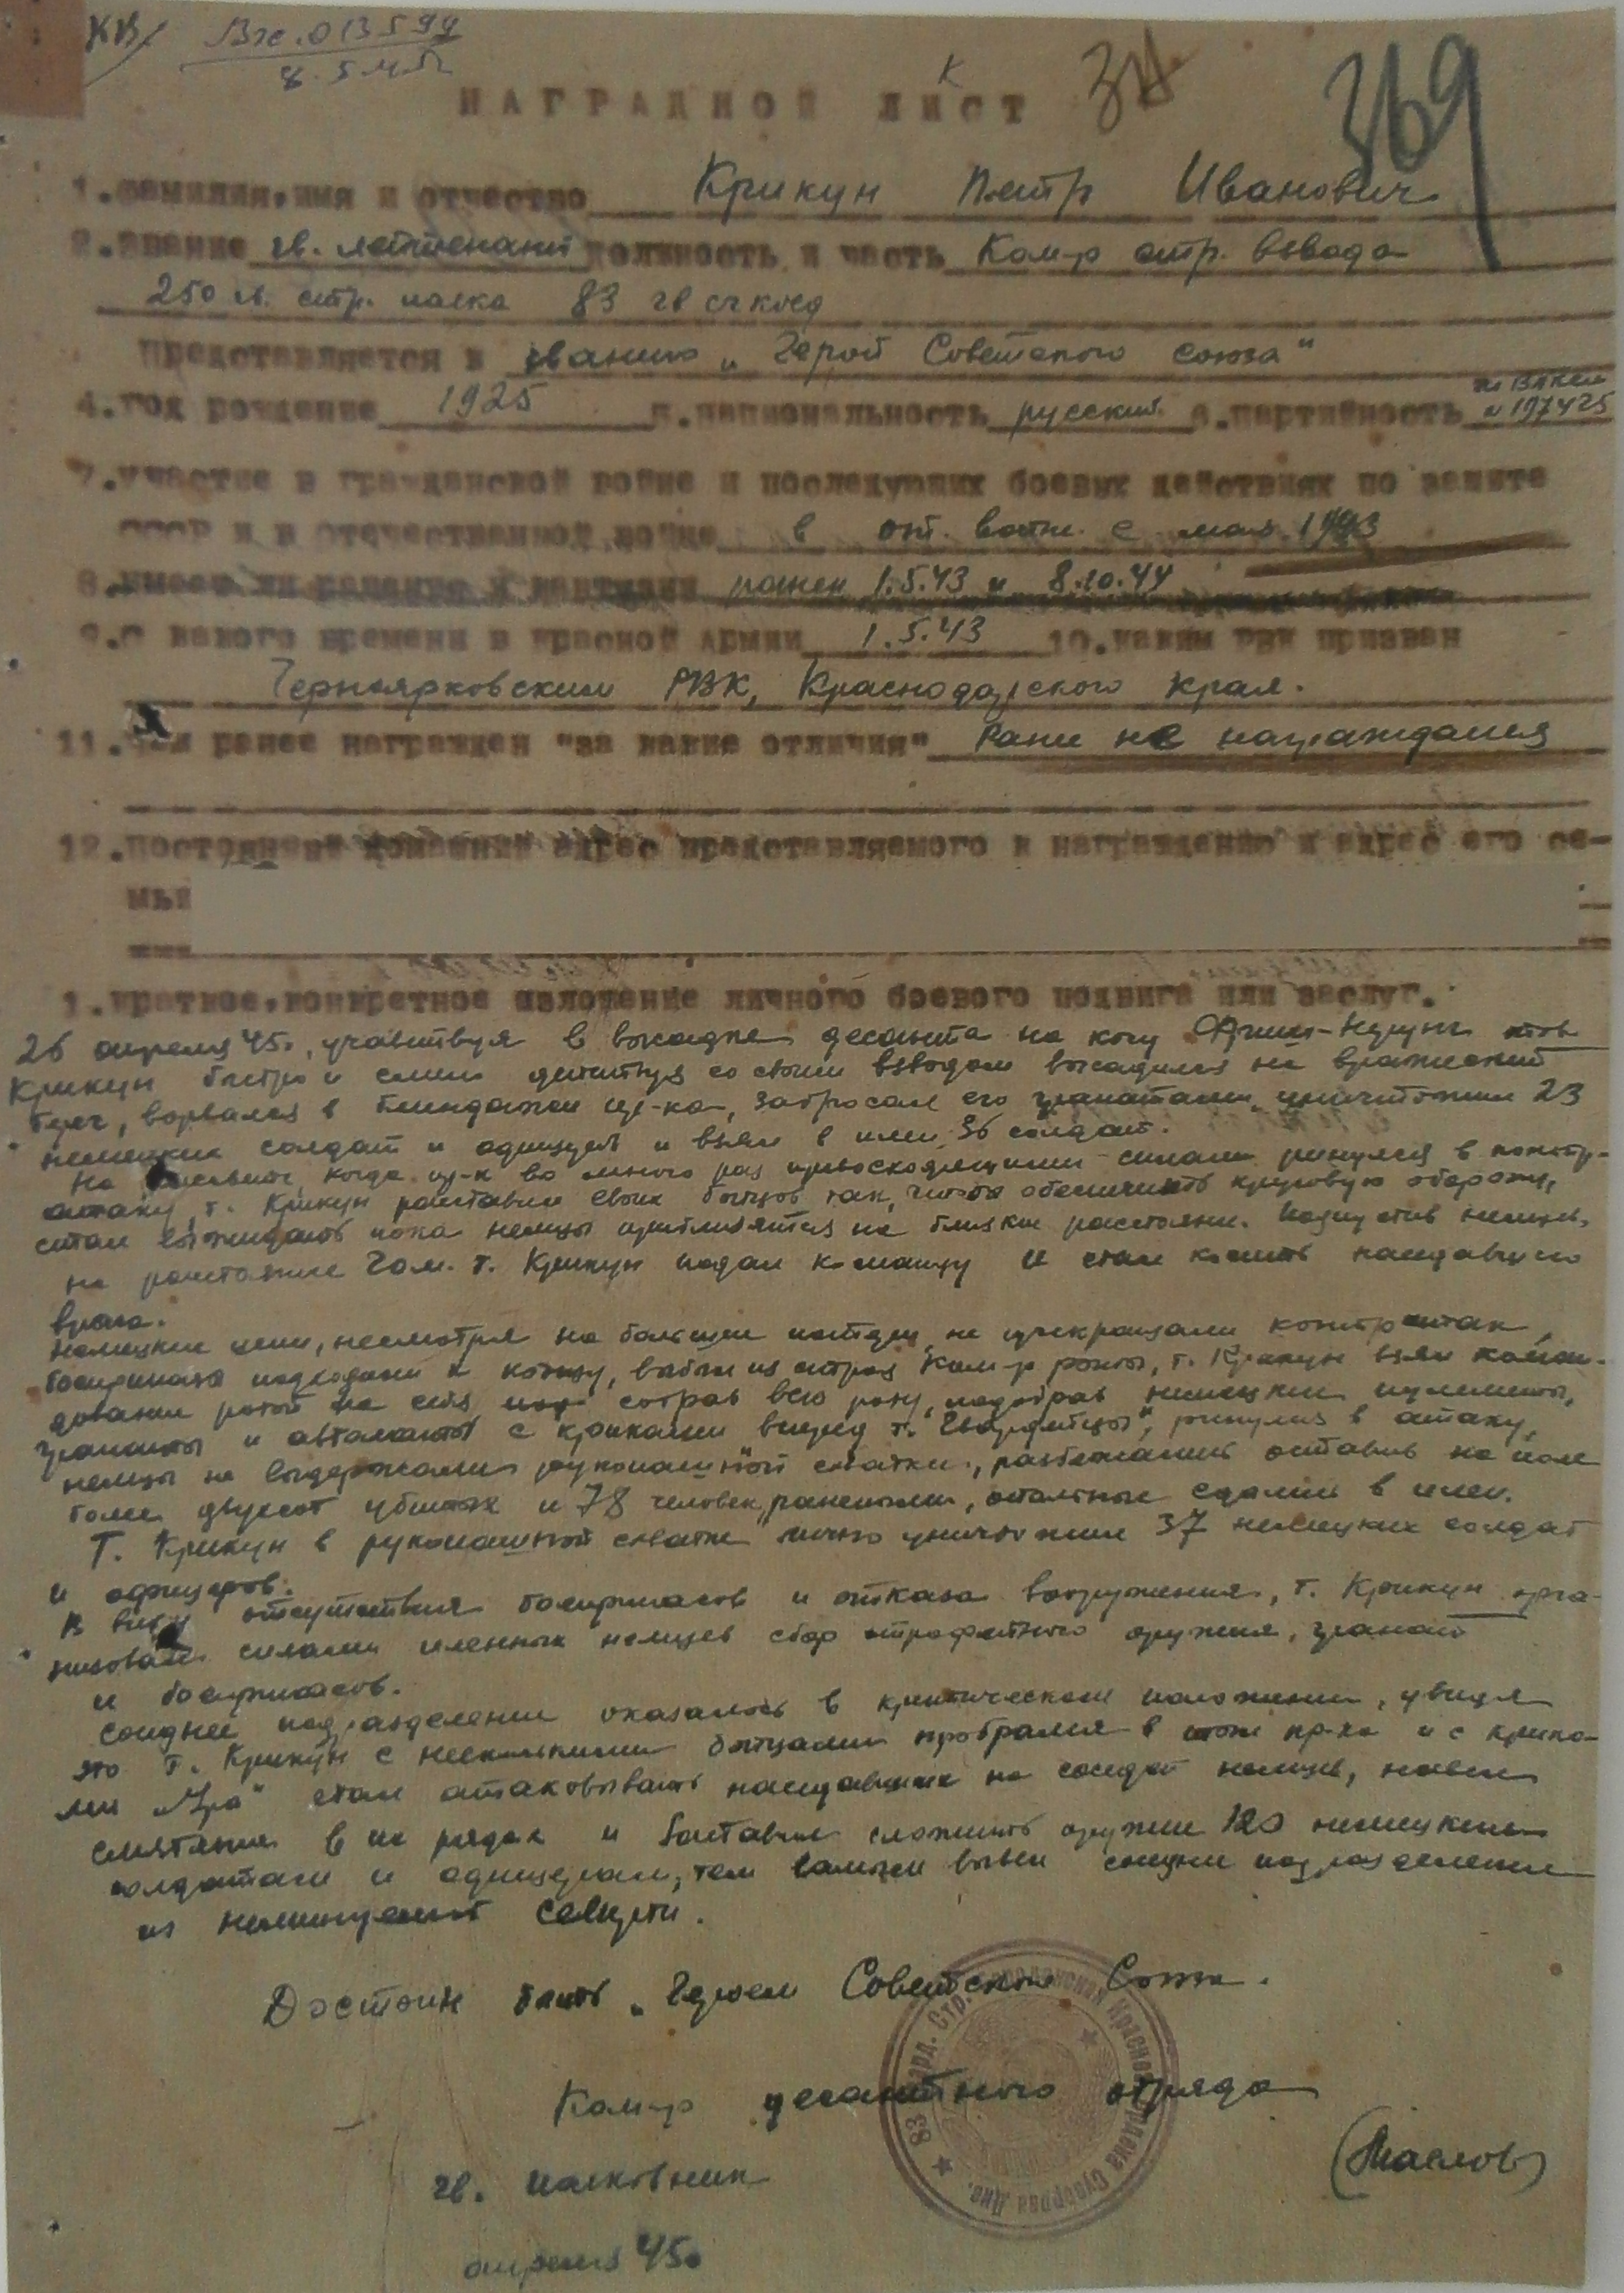 КВ Вх.013599
8.5.45
НАГРАДНОЙ ЛИСТ 369
1.Фамилия,имя и отчество Крикун Петр Иванович
2.Звание гв. лейтенант должность и часть Ком-р стр. взвода
250 гв. стр. полка 83 гв
Представляется к званию „Герой Советского Союза"
4.Год рождение 1925 5.национальность русский 6.партийность ВЛКСМ
7.Участие в гражданской войне и последующих боевых действиях по защите
СССР и в отечественной войне в от. войне с мая 1943
8.Имеет ли ранения и контузии ранен 1.5.43 и 8.10.44
9.С какого времени в Красной Армии 1.5.43 10.каким РВК призван
РВК, Краснодарского края.
11.Чем ранее награжден "за какие отличия" Ране не награждался
12.Постоянный домашний адрес представляемого к награждению и адрес его се-
мьи
1.Краткое,конкретное изложение личного боевого подвига или заслуг.
26 апреля 45г. участвуя в высадке десанта на косу Фриш-Нерунг
Крикун быстро и смело действуя со своим взводом высадился на вражеский
берег, ворвался в блиндажи пр-ка, забросал его гранатами, уничтожил 23
немецких солдат и офицеров и взял в плен 36 солдат.
На когда пр-к во много раз превосходящими силами ринулся в контр-
атаку, т. Крикун расставил своих бойцов так, чтобы обеспечить круговую оборону,
стал выжидать пока немцы приблизятся на близкое расстояние. Подпустив немцев
на расстояние 20м. т. Крикун подал команду и стал косить наседавшего
врага.
Немецкие цепи, несмотря на большие потери не прекращали контратак,
боеприпасы подходили к концу, выбыл из строя ком-р роты, т. Крикун взял коман-
дование ротой на себя собрав всю роту, подобрав немецкие пулеметы,
гранаты и автоматы с криками вперед т. "Гвардейцы", ринулись в атаку,
немцы не выдержали рукопашной схватки, разбежались оставив на поле
более двухсот убитых и 78 человек ранеными, остальные сдались в плен.
Т. Крикун в рукопашной схватке лично уничтожил 37 немецких солдат
и офицеров.
В виду отсутствия боеприпасов и отказа вооружения, т. Крикун орга-
низовал силами пленных немцев сбор трофейного оружия, гранат
и боеприпасов.
Соседнее подразделение оказалось в критическом положении, увидя
это т. Крикун с несколькими бойцами пробрался в тыл пр-ка и с крика-
ми „Ура" стал атаковывать наседавших на соседей немцев, навел
смятение в их рядах и заставил сложить оружие 120 немецким
солдатам и офицерам, тем самым вывел соседнее подразделение
из неминуемой смерти.
Достоин быть „Героем Советского Союза.
Ком-р десантного отряда
гв. полковник (Маслов)
апреля 45г
83 Гвард. Стр. Городокская Краснозн. Ордена Суворова Див.